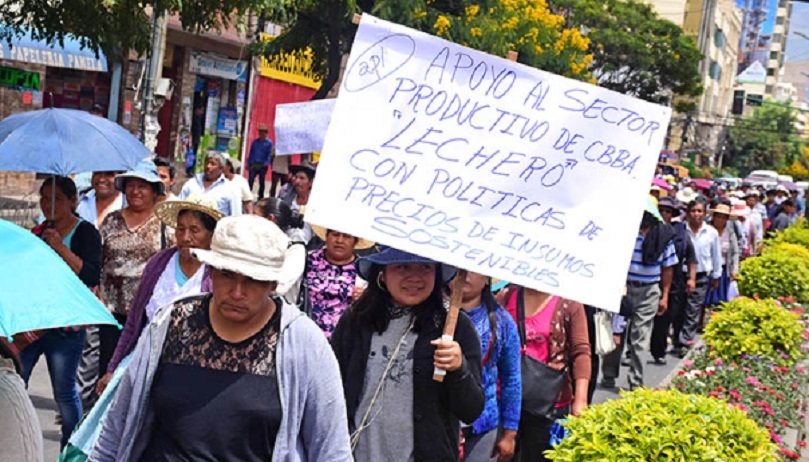 APOYO AL SECTOR
PRODUCTIVO DE CBBA.
"LECHERO"
CON POLITICAS DE
PRECIOS DE INSUMOS
SOSTENIBLES